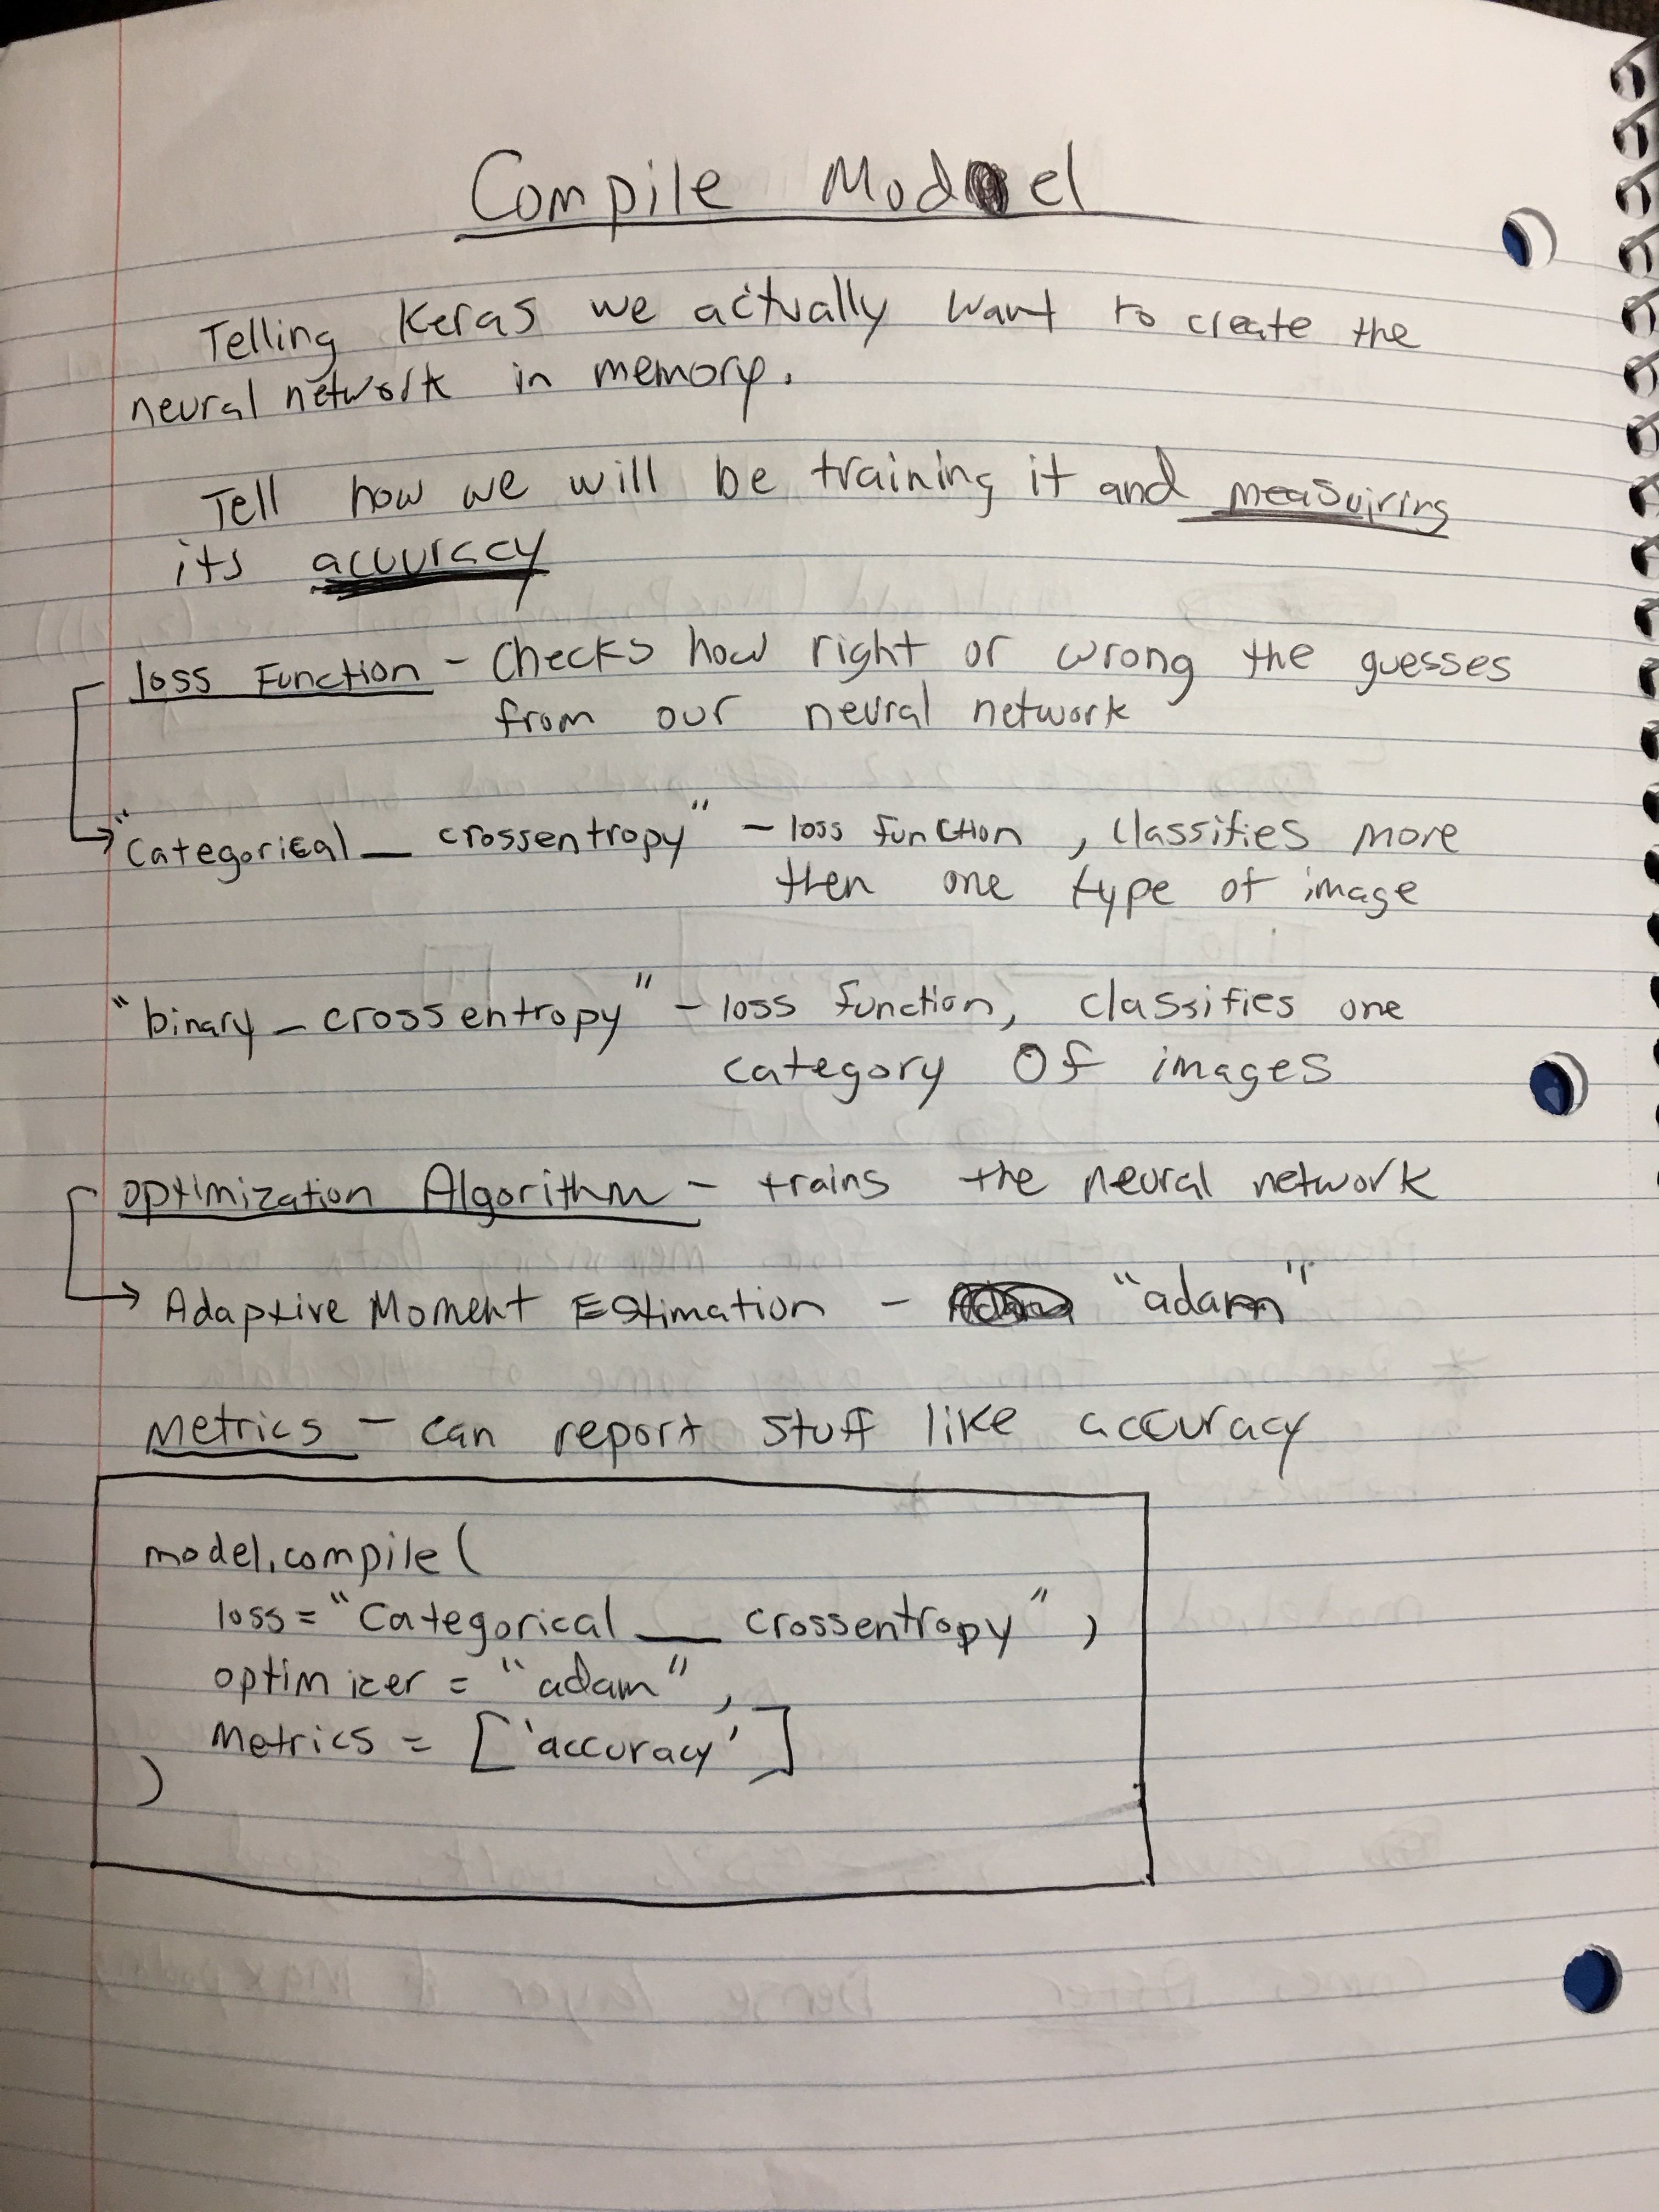 Compile Model
Telling Keras we actually want to create the
neural network in memory.
Tell how we will be training it and measuiring
its accuracy
loss Function - Checks how right or wrong the guesses
from our neural network
"Categorical_crossentropy" - loss function, classifies more
then one type of image
"binary_crossentropy" - loss function, classifies one
category of images
Optimization Algorithm - trains the neural network
Adaptive Moment Estimation - "adam"
Metrics - can report stuff like accuracy
model.compile(
loss="Categorical_crossentropy",
optimizer = "adam",
Metrics = ['accuracy']
)